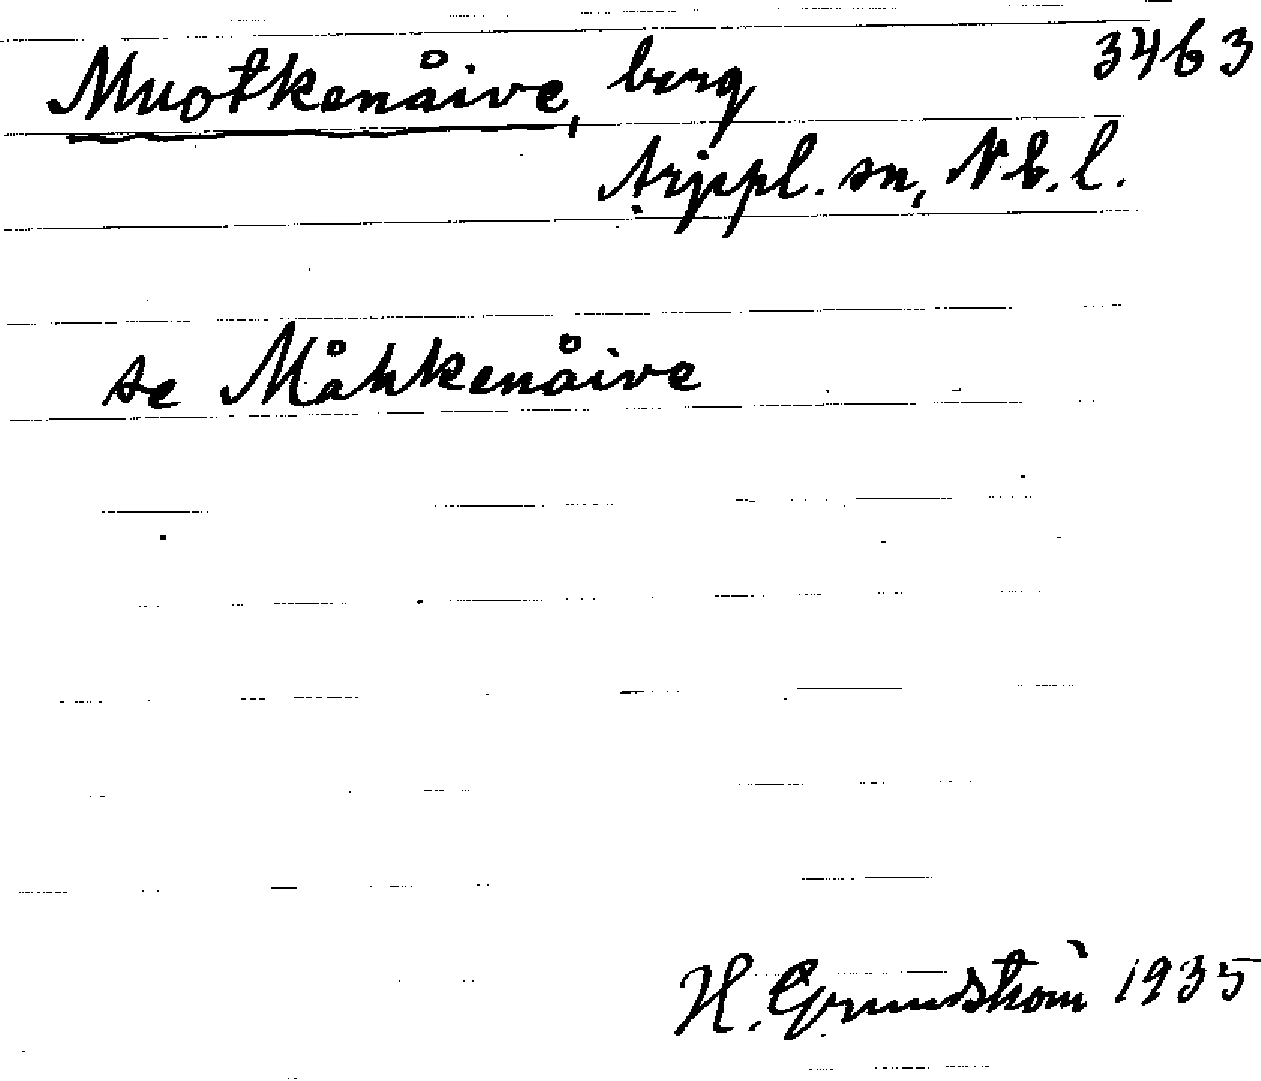 3463
Muotkenåive, berg
Arjppl. sn, Nb. l.
se Måhkenåive
H. Grundström 1935